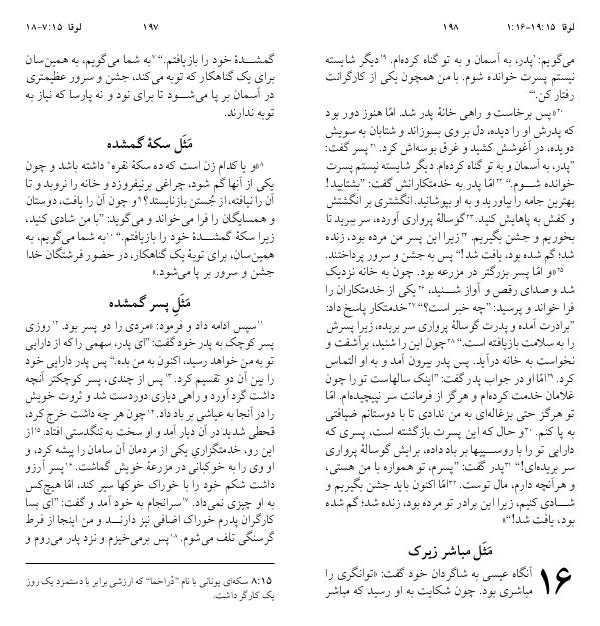 لوقا ۷:۱۵-۱۸ ۱۹۷
گمشدهٔ خود را بازیافتم.“ ۷به شما می‌گویم، به همین‌سان
برای یک گناهکار که توبه می‌کند، جشن و سرور عظیمتری
در آسمان بر پا می‌شود تا برای نود و نه پارسا که نیاز به
توبه ندارند.
مَثَل سکهٔ گمشده
۸«و یا کدام زن است که ده سکهٔ نقره* داشته باشد و چون
یکی از آنها گم شود، چراغی برنیفروزد و خانه را نروبد و تا
آن را نیافته، از جُستن بازنایستد؟ ۹و چون آن را یافت، دوستان
و همسایگان را فرا می‌خواند و می‌گوید: ”با من شادی کنید،
زیرا سکهٔ گمشدهٔ خود را بازیافتم.“ ۱۰به شما می‌گویم، به
همین‌سان، برای توبهٔ یک گناهکار، در حضور فرشتگان خدا
جشن و سرور بر پا می‌شود.»
مَثَلِ پسر گمشده
۱۱سپس ادامه داد و فرمود: «مردی را دو پسر بود. ۱۲روزی
پسر کوچک به پدر خود گفت: ”ای پدر، سهمی را که از دارایی
تو به من خواهد رسید، اکنون به من بده.“ پس پدر دارایی خود
را بین آن دو تقسیم کرد. ۱۳پس از چندی، پسر کوچکتر آنچه
داشت گرد آورد و راهی دیاری دوردست شد و ثروت خویش
را در آنجا به عیاشی بر باد داد. ۱۴چون هر چه داشت خرج کرد،
قحطی شدید در آن دیار آمد و او سخت به تنگدستی افتاد. ۱۵از
این رو، خدمتگزاریِ یکی از مردمان آن سامان را پیشه کرد، و
او وی را به خوکبانی در مزرعهٔ خویش گماشت. ۱۶پسر آرزو
داشت شکم خود را با خوراک خوکها سیر کند، امّا هیچ‌کس
به او چیزی نمی‌داد. ۱۷سرانجام به خود آمد و گفت: ”ای بسا
کارگران پدرم خوراک اضافی نیز دارند و من اینجا از فرط
گرسنگی تلف می‌شوم. ۱۸پس برمی‌خیزم و نزد پدر می‌روم و
۸:۱۵ سکه‌ای یونانی با نام ”دْراخما“ که ارزشی برابر با دستمزد یک روز
یک کارگر داشت.
لوقا ۱۹:۱۵-۱:۱۶ ۱۹۸
می‌گویم: ’پدر، به آسمان و به تو گناه کرده‌ام. ۱۹دیگر شایسته
نیستم پسرت خوانده شوم. با من همچون یکی از کارگرانت
رفتار کن.‘“
۲۰«پس برخاست و راهی خانهٔ پدر شد. امّا هنوز دور بود
که پدرش او را دیده، دل بر وی بسوزاند و شتابان به سویش
دویده، در آغوشش کشید و غرق بوسه‌اش کرد. ۲۱پسر گفت:
”پدر، به آسمان و به تو گناه کرده‌ام. دیگر شایسته نیستم پسرت
خوانده شوم.“ ۲۲امّا پدر به خدمتکارانش گفت: ”بشتابید!
بهترین جامه را بیاورید و به او بپوشانید. انگشتری بر انگشتش
و کفش به پاهایش کنید. ۲۳گوسالهٔ پرواری آورده، سر ببرید تا
بخوریم و جشن بگیریم. ۲۴زیرا این پسر من مرده بود، زنده
شد؛ گم شده بود، یافت شد!“ پس به جشن و سرور پرداختند.
۲۵«و امّا پسر بزرگتر در مزرعه بود. چون به خانه نزدیک
شد و صدای رقص و آواز شنید، ۲۶یکی از خدمتکاران را
فرا خواند و پرسید: ”چه خبر است؟“ ۲۷خدمتکار پاسخ داد:
”برادرت آمده و پدرت گوسالهٔ پرواری سر بریده، زیرا پسرش
را به سلامت بازیافته است.“ ۲۸چون این را شنید، برآشفت و
نخواست به خانه درآید. پس پدر بیرون آمد و به او التماس
کرد. ۲۹امّا او در جواب پدر گفت: ”اینک سالهاست تو را چون
غلامان خدمت کرده‌ام و هرگز از فرمانت سر نپیچیده‌ام. امّا
تو هرگز حتی بزغاله‌ای به من ندادی تا با دوستانم ضیافتی
به پا کنم. ۳۰و حال که این پسرت بازگشته است، پسری که
دارایی تو را با روسپیها بر باد داده، برایش گوسالهٔ پرواری
سر بریده‌ای!“ ۳۱پدر گفت: ”پسرم، تو همواره با من هستی،
و هرآنچه دارم، مال توست. ۳۲امّا اکنون باید جشن بگیریم و
شادی کنیم، زیرا این برادر تو مرده بود، زنده شد؛ گم شده
بود، یافت شد!“»
مَثَل مباشر زیرک
۱۶ آنگاه عیسی به شاگردان خود گفت: «توانگری را
مباشری بود. چون شکایت به او رسید که مباشر